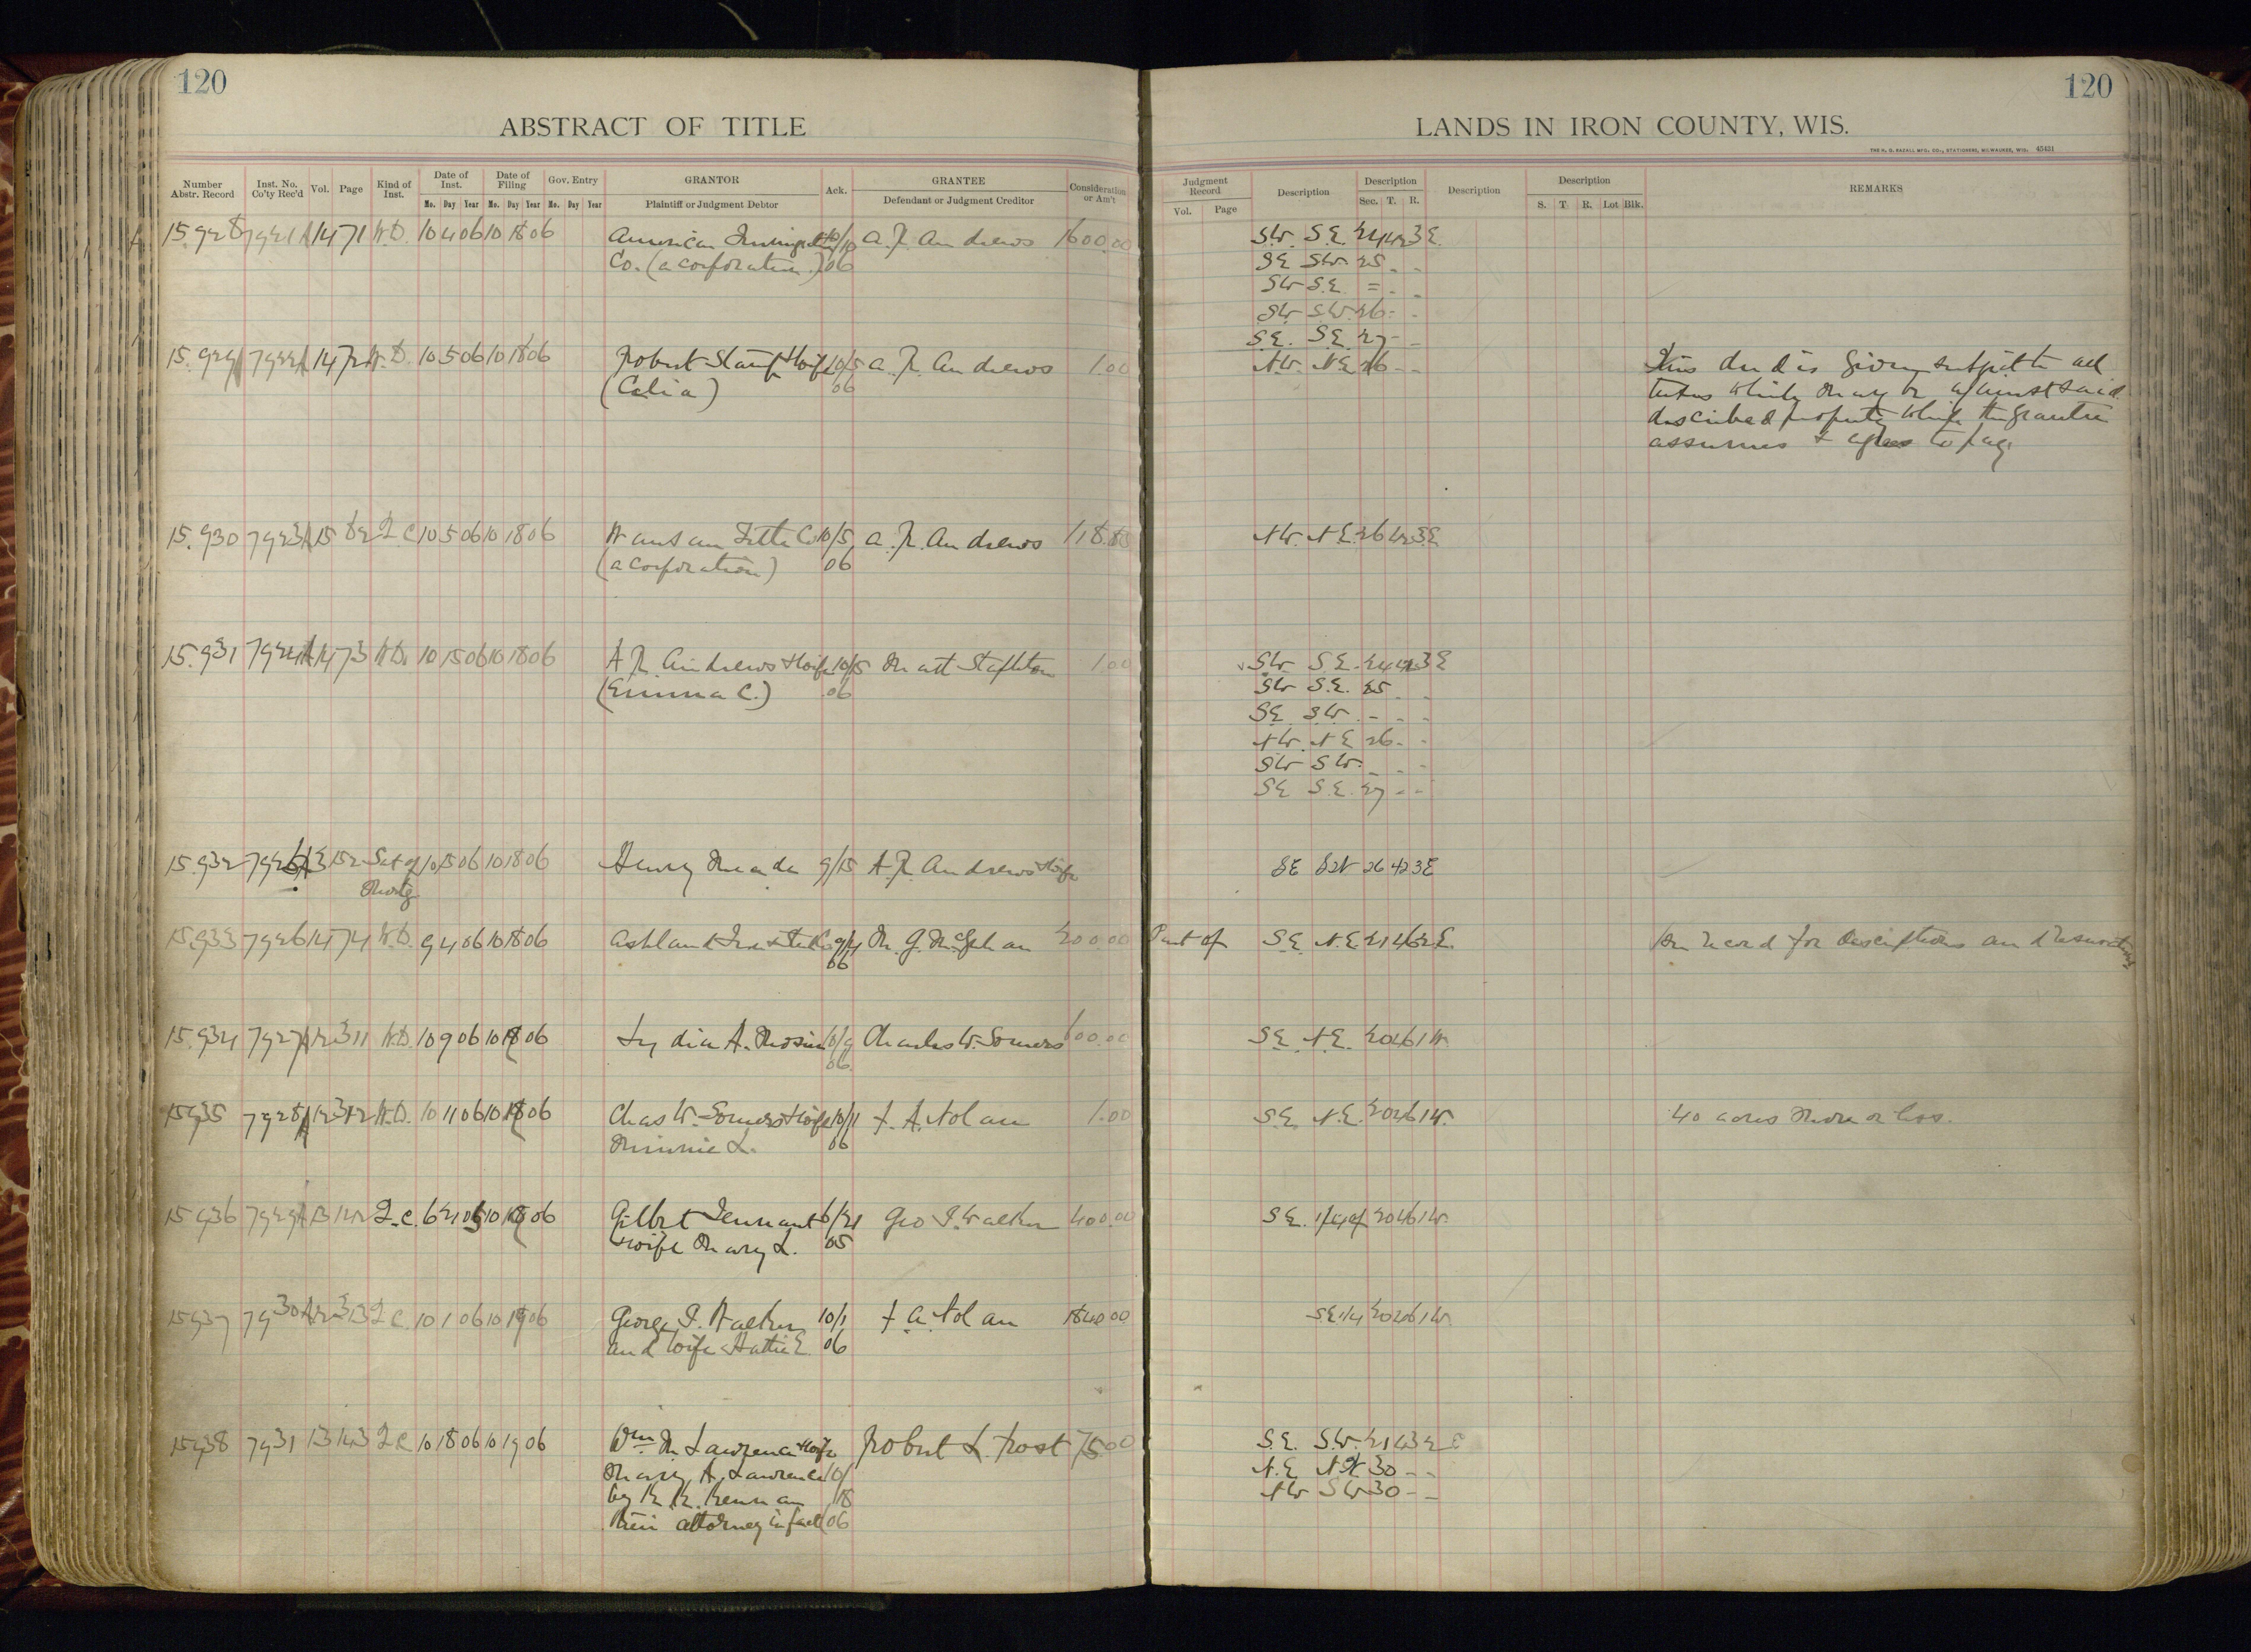 120
120
ABSTRACT OF TITLE
LANDS IN IRON COUNTY, WIS.
THE H. G. RAZALL MFG. CO., STATIONERS, MILWAUKEE, WIS. 45424
Number Abstr. Record Inst. No. Co'ty Rec'd Vol. Page Kind of Inst. Date of Inst. Date of Filing Gov. Entry GRANTOR Ack. GRANTEE Consideration or Am't Judgment Record Description Description Description Description REMARKS
Mo. Day Year Mo. Day Year Mo. Day Year Plaintiff or Judgment Debtor Defendant or Judgment Creditor Vol. Page Sec. T. R. S. T. R. Lot Blk.
15.928 7921 A 14 71 W.D. 10 4 06 10 18 06 American 10/10 A. R. Andrews 1600.00 SW. S.E. 24 42 3 E.
Co. (a corporation.) 06 SE SW. 25 - -
SW S.E. = - -
SW SW. 26 - -
S.E. S.E. 27 - -
15.929 7922 A 14 72 W.D. 10 5 06 10 18 06 Robert & wife 10/5 A. R. Andrews 1.00 N.W. N.E. 26 - - This deed is given subject to all
(Celia) 06 taxes which may be against said
described property which the grantee
assumes & agrees to pay.
15.930 7923 A 15 82 Q.C. 10 5 06 10 18 06 Wausau Title Co 10/5 A. R. Andrews 118.83 N.W. N.E. 26 42 3 E
(a corporation) 06
15.931 7924 A 14 73 W.D. 10 15 06 10 18 06 A R. Andrews & wife 10/15 Matt Stapleton 1.00 SW S.E. 24 42 3 E
(Emma C.) 06 SW S.E. 25 - -
SE SW. - - -
N.W. N.E 26 - -
SW SW. - - -
SE S.E. 27 - -
15.932 3 152 Sat of 10 15 06 10 18 06 Henry Meade 9/15 A. R. Andrews & wife SE SW 26 42 3 E
Mortg
15.933 7926 14 74 W.D. 9 4 06 10 18 06 Ashland Iron & Steel Co 9/4 M. G. 200.00 Part of S.E. N.E 21 46 2 E. See record for descriptions and reservations
06
15.934 7927 A 12 311 W.D. 10 9 06 10 18 06 Lydia A. 10/9 Charles W. Somers 600.00 S.E. N.E. 20 46 1 W.
06
15935 7928 A 12 312 W.D. 10 11 06 10 18 06 Chas W. Somers & wife 10/11 F. A. Nolan 1.00 S.E. N.E. 20 46 1 W. 40 acres more or less.
Minnie L. 06
15936 7929 A 13 142 Q.C. 6 21 05 10 18 06 Gilbt Tennant 6/21 Geo I. Walker 400.00 S.E. 1/4 of 20 46 1 W.
& wife Mary L. 05
15937 7930 A 12 313 Q.C. 10 1 06 10 18 06 George I. Walker 10/1 F. A. Nolan 1840.00 S.E 1/4 20 46 1 W.
and wife Hattie E. 06
15938 7931 13 143 Q.C 10 18 06 10 19 06 Wm M. Lawrence & wife Robert L. Frost 75.00 S.E. S.W. 21 43 2 E
Mary A. Lawrence 10/ N.E NW 30 - -
by K. K. Kennan 18 NW SW 30 - -
their attorney in fact 06